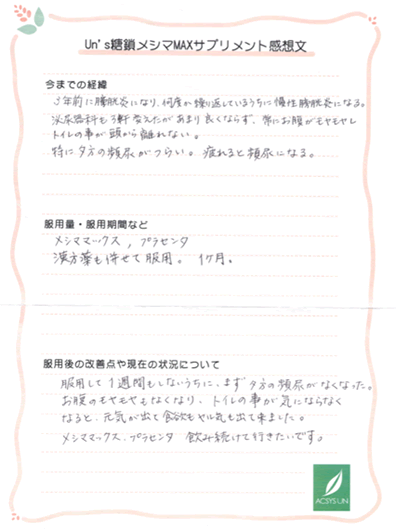 Un's糖鎖メシマMAXサプリメント感想文
今までの経緯
3年前に膀胱炎になり、何度か繰り返しているうちに慢性膀胱炎になる。
泌尿器科も3軒変えたがあまり良くならず、常にお腹がモヤモヤし
トイレの事が頭から離れない。
特に夕方の頻尿がつらい。疲れると頻尿になる。
服用量・服用期間など
メシママックス, プラセンタ
漢方薬も併せて服用。 1ヶ月。
服用後の改善点や現在の状況について
服用して1週間もしないうちに、まず夕方の頻尿がなくなった。
お腹のモヤモヤもなくなり、トイレの事が気にならなく
なると、元気が出て食欲もヤル気も出て来ました。
メシママックス、プラセンタ 飲み続けて行きたいです。
ACSYSUN